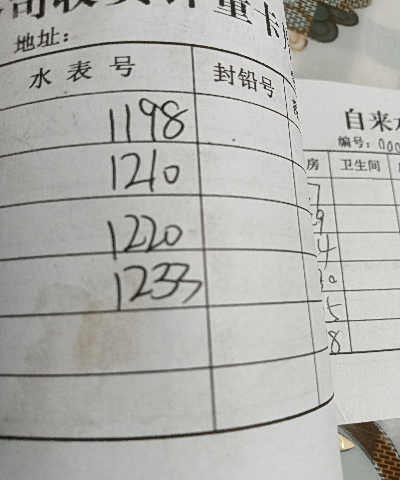 计量卡
地址：
水表号 封铅号
1198
1210
1220
1233
自来水
编号：000
房 卫生间
7
9
4
5
8